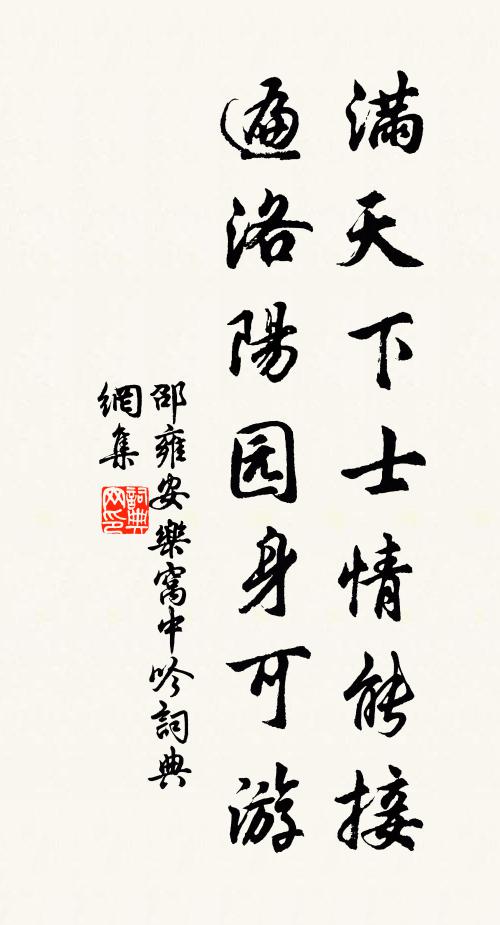 滿天下士情能接
遍洛陽园身可游
邵雍安樂窩中吟詞典
網集
詞典
网印